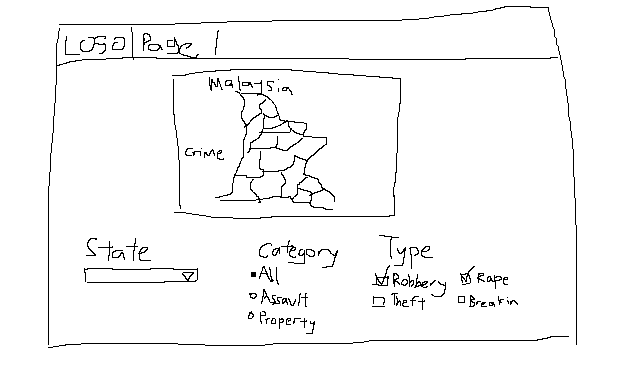 LOGO Page
Malaysia
Crime
State
Category
All
Assault
Property
Type
Robbery Rape
Theft Breakin